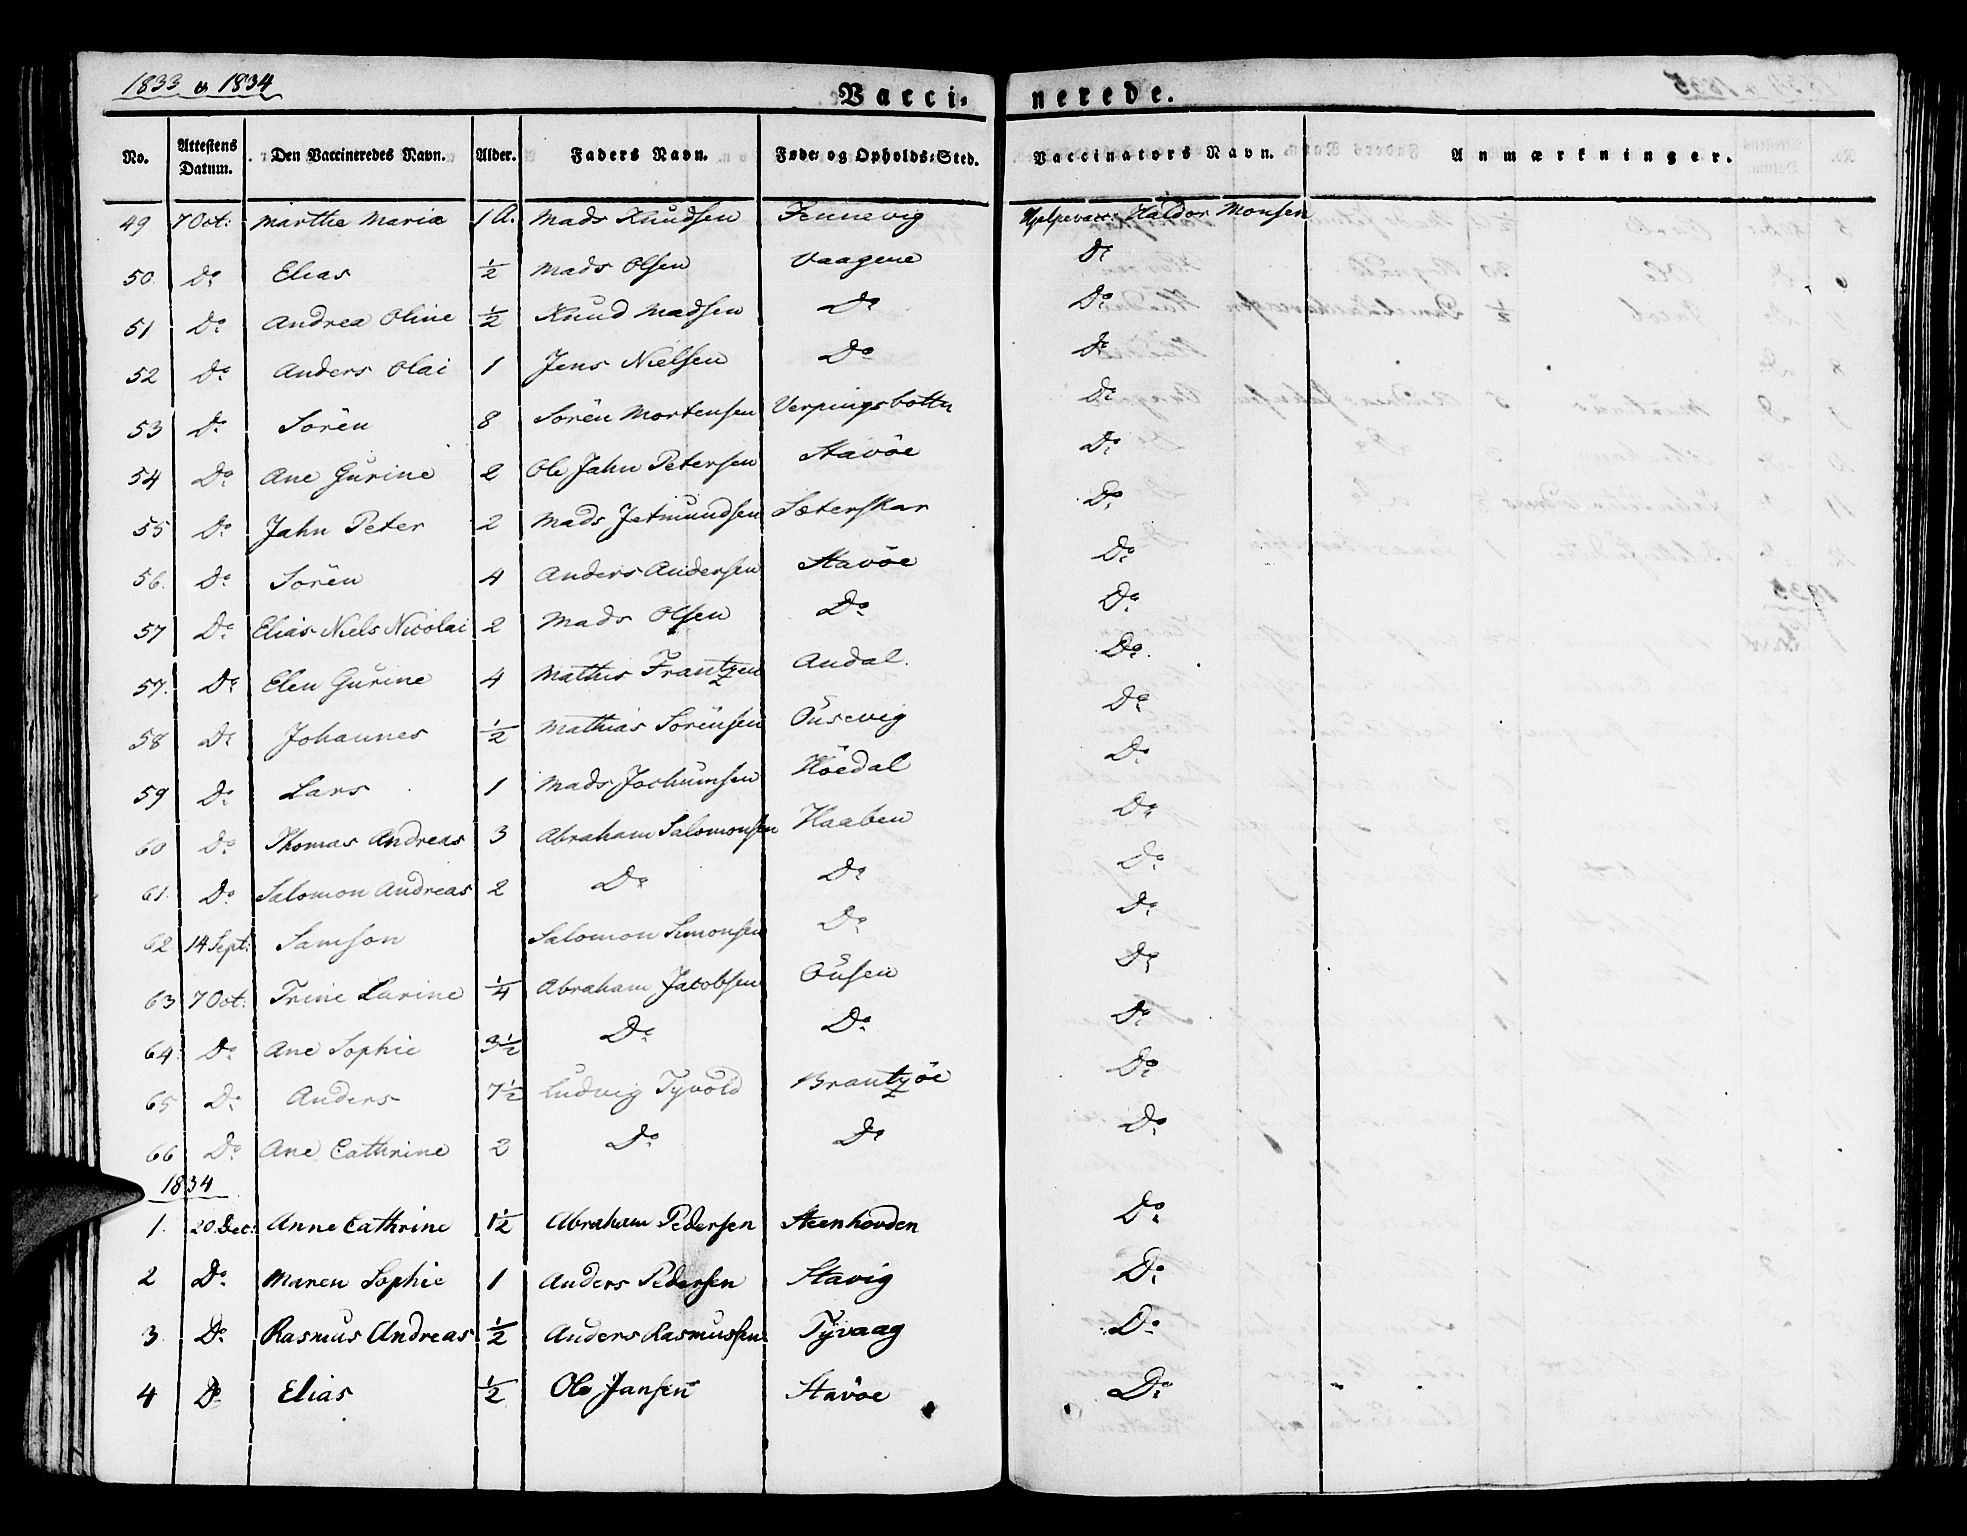 1833 & 1834
Vaccinerede.
No. Attestens Datum. Den Vaccineredes Navn. Alder. Faders Navn. Føde- og Opholds-Sted. Vaccinators Navn. Anmærkninger.
49 7 Oct: Marthe Maria 1 A. Mads Knudsen Fennevig Hjelpevacc: Haldor Monsen
50. Do Elias ½ Mads Olsen Vaagene Do
51 Do Andrea Oline ½ Knud Madsen Do Do
52 Do Anders Olai 1 Jens Nielsen Do Do
53 Do Sören 8 Sören Mortensen Verpingsbottn Do
54 Do Ane Gurine 2 Ole Jahn Petersen Stavöe Do
55 Do Jahn Peter 2 Mads Jetmundsen Sæterskar Do
56. Do Sören 4 Anders Andersen Stavöe Do
57 Do Elias Niels Nicolai 2 Mads Olsen Do Do
57. Do Elen Gurine 4 Mathis Frantzen Audal. Do.
58 Do Johannes ½ Mathias Sörensen Öusevig Do
59 Do Lars 1 Mads Jochumsen Höedal Do
60 Do Thomas Andreas 3 Abraham Salomonsen Haaben Do
61. Do Salomon Andreas 2 Do Do Do
62. 14 Sept: Samson Salomon Simonsen Do Do
63 7 Oct: Trine Larine ¼ Abraham Jacobsen Öusen Do
64. Do Ane Sophie 3½ Do Do Do
65 Do Anders 7½ Ludvig Tyvold Brantzöe Do
66 Do Ane Cathrine 2 Do Do Do
1834
1. 20 Dec: Anne Cathrine 1½ Abraham Pedersen Steenhovden Do
2 Do Maren Sophie 1 Anders Pedersen Stavig Do
3. Do Rasmus Andreas ½ Anders Rasmussen Tyvaag Do
4 Do Elias ½ Ole Jansen Stavöe Do